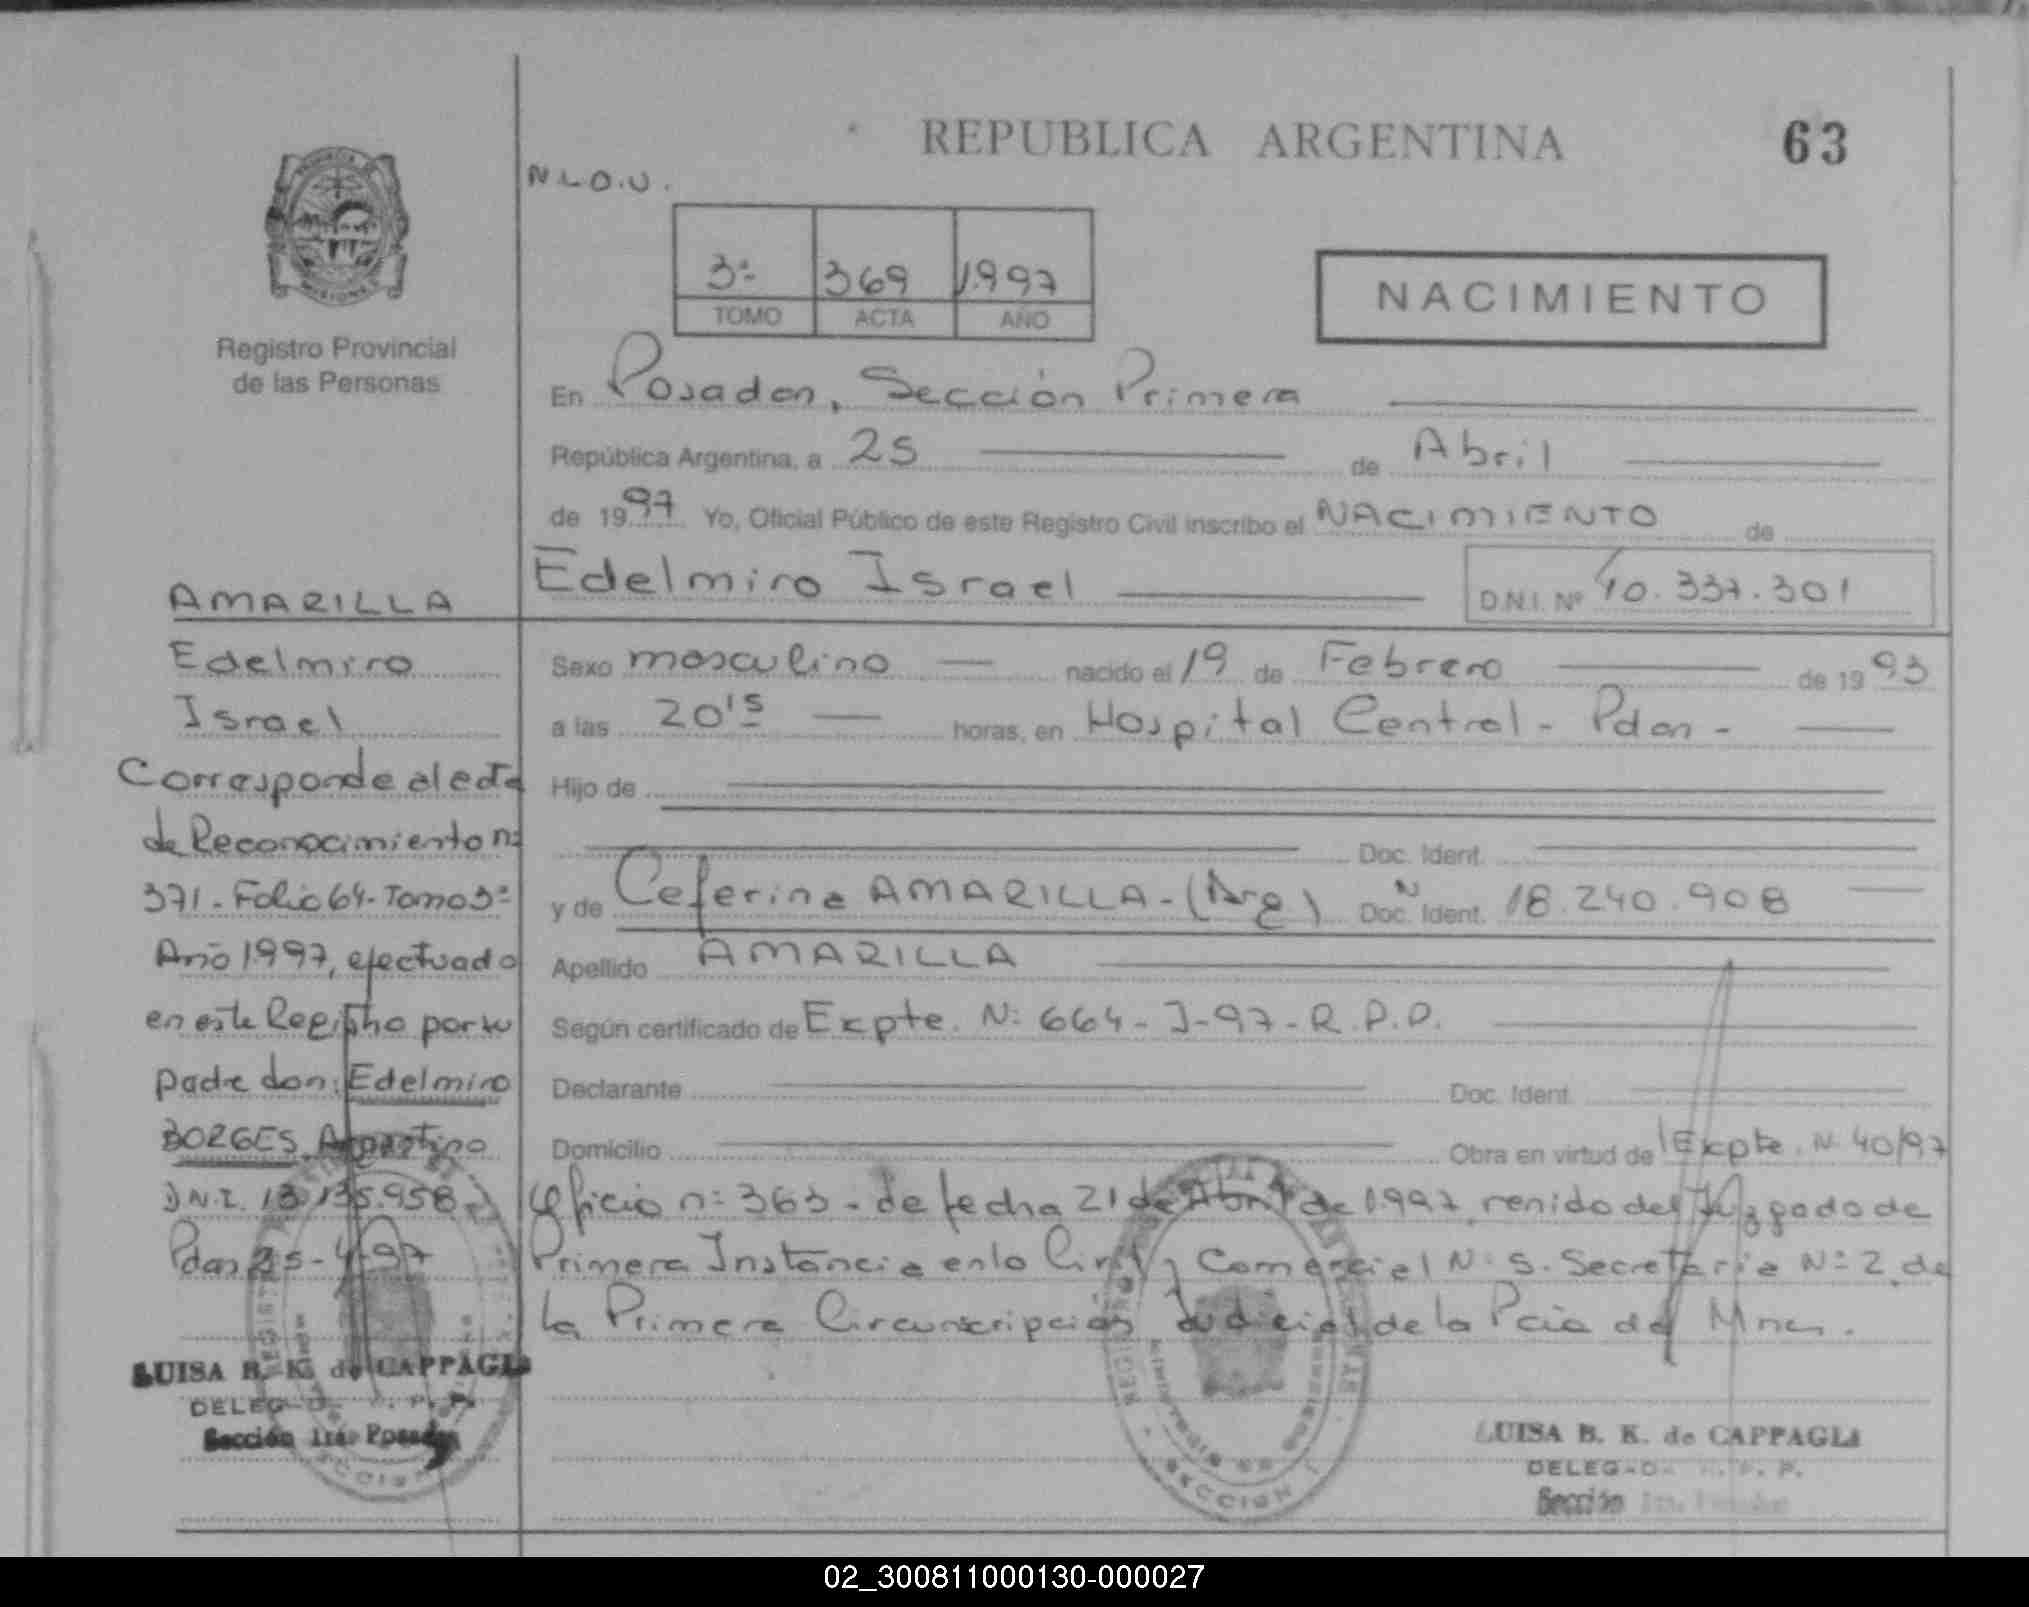 REPUBLICA ARGENTINA
63
PROVINCIA DE
MISIONES
Registro Provincial
de las Personas
N.L.O.U.
3ª 369 1.997
TOMO ACTA AÑO
NACIMIENTO
En Posadas, Sección Primera
República Argentina, a 25 de Abril
de 1997 Yo, Oficial Público de este Registro Civil inscribo el NACIMIENTO de
Edelmiro Israel D.N.I. Nº 40.337.301
Sexo masculino nacido el 19 de Febrero de 1993
a las 20'15 horas, en Hospital Central - Pdas -
Hijo de
Doc. Ident.
y de Ceferina AMARILLA - (Arg) Doc. Ident. Nº 18.240.908
Apellido AMARILLA
Según certificado de Expte. Nº 664 - J - 97 - R.P.P.
Declarante Doc. Ident.
Domicilio Obra en virtud de Expte. Nº 40/97
Oficio nº 363 - de fecha 21 de Abril de 1.997, del Juzgado de
Primera Instancia en lo Civil y Comercial Nº 5. Secretaria Nº 2 de
la Primera Circunscripción Judicial de la Pcia de Mnes.
AMARILLA
Edelmiro
Israel
Corresponde al acta
de Reconocimiento nº
371 - Folio 64 - Tomo 3ª
Año 1.997, efectuado
en este Registro por su
padre don: Edelmiro
BORGES, Argentino
D.N.I. 13.135.958
Pdas 25-4-97
LUISA B. K. de CAPPAGLI
DELEGADA R. P. P.
Sección 1ra. Posadas
LUISA B. K. de CAPPAGLI
DELEGADA R. P. P.
Sección 1ra. Posadas
02_300811000130-000027